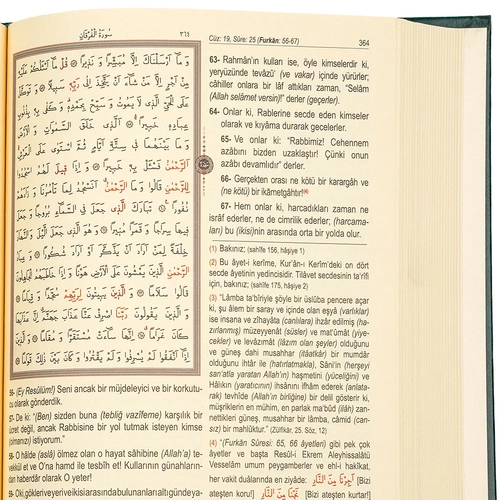 سُورَةُ الْفُرْقَانِ
٣٦٤
وَمَٓا اَرْسَلْنَاكَ اِلَّا مُبَشِّرًا وَنَذ۪يرًا قُلْ مَٓا اَسْـَٔلُكُمْ عَلَيْهِ
مِنْ اَجْرٍ اِلَّا مَنْ شَٓاءَ اَنْ يَتَّخِذَ اِلٰى رَبِّه۪ سَب۪يلًا وَتَوَكَّلْ
عَلَى الْحَيِّ الَّذ۪ي لَا يَمُوتُ وَسَبِّحْ بِحَمْدِه۪ وَكَفٰى بِه۪ بِذُنُوبِ
عِبَادِه۪ خَب۪يرًا اَلَّذ۪ي خَلَقَ السَّمٰوَاتِ وَالْاَرْضَ
وَمَا بَيْنَهُمَا ف۪ي سِتَّةِ اَيَّامٍ ثُمَّ اسْتَوٰى عَلَى الْعَرْشِ
اَلرَّحْمٰنُ فَسْـَٔلْ بِه۪ خَب۪يرًا وَاِذَا ق۪يلَ لَهُمُ اسْجُدُوا
لِلرَّحْمٰنِ قَالُوا وَمَا الرَّحْمٰنُ اَنَسْجُدُ لِمَا تَأْمُرُنَا وَزَادَهُمْ
نُفُورًا تَبَارَكَ الَّذ۪ي جَعَلَ فِي السَّمَٓاءِ بُرُوجًا وَجَعَلَ
ف۪يهَا سِرَاجًا وَقَمَرًا مُن۪يرًا وَهُوَ الَّذ۪ي جَعَلَ الَّيْلَ وَالنَّهَارَ
خِلْفَةً لِمَنْ اَرَادَ اَنْ يَذَّكَّرَ اَوْ اَرَادَ شُكُورًا وَعِبَادُ
الرَّحْمٰنِ الَّذ۪ينَ يَمْشُونَ عَلَى الْاَرْضِ هَوْنًا وَاِذَا خَاطَبَهُمُ الْجَاهِلُونَ
قَالُوا سَلَامًا وَالَّذ۪ينَ يَب۪يتُونَ لِرَبِّهِمْ سُجَّدًا وَقِيَامًا
وَالَّذ۪ينَ يَقُولُونَ رَبَّنَا اصْرِفْ عَنَّا عَذَابَ جَهَنَّمَ اِنَّ عَذَابَهَا
كَانَ غَرَامًا اِنَّهَا سَٓاءَتْ مُسْتَقَرًّا وَمُقَامًا وَالَّذ۪ينَ
اِذَٓا اَنْفَقُوا لَمْ يُسْرِفُوا وَلَمْ يَقْتُرُوا وَكَانَ بَيْنَ ذٰلِكَ قَوَامًا
56- (Ey Resûlüm!) Seni ancak bir müjdeleyici ve bir korkutu-
cu olarak gönderdik.
57- De ki: "(Ben) sizden buna (tebliğ vazîfeme) karşılık bir
ücret değil, ancak Rabbisine bir yol tutmak isteyen kimse
(olmanızı) istiyorum."
58- O hâlde (aslâ) ölmez olan o hayat sâhibine (Allah'a) te-
vekkül et ve O'na hamd ile tesbîh et! Kullarının günahların-
dan haberdar olarak O yeter!
59- O ki, gökleri ve yeri ve ikisi arasında bulunanları altı günde ya-
Cüz: 19, Sûre: 25 (Furkān: 56-67)
364
63- Rahmân'ın kulları ise, öyle kimselerdir ki,
yeryüzünde tevâzû' (ve vakar) içinde yürürler;
câhiller onlara bir lâf attıkları zaman, "Selâm
(Allah selâmet versin)!" derler (geçerler).
64- Onlar ki, Rablerine secde eden kimseler
olarak ve kıyâma durarak gecelerler.
65- Ve onlar ki: "Rabbimiz! Cehennem
azâbını bizden uzaklaştır! Çünki onun
azâbı devamlıdır" derler.
66- Gerçekten orası ne kötü bir karargâh ve
(ne kötü) bir ikāmetgâhtır!(4)
67- Hem onlar ki, harcadıkları zaman ne
isrâf ederler, ne de cimrilik ederler; (harcama-
ları) bu (ikisi)nin arasında orta bir yolda olur.
(1) Bakınız; (sahîfe 156, hâşiye 1)
(2) Bu âyet-i kerîme, Kur'ân-ı Kerîm'deki on dört
secde âyetinin yedincisidir. Tilâvet secdesinin ta'rîfi
için, bakınız; (sahîfe 175, hâşiye 2)
(3) "Lâmba ta'bîriyle şöyle bir üslûba pencere açar
ki, şu âlem bir saray ve içinde olan eşyâ (varlıklar)
ise insana ve zîhayâta (canlılara) ihzâr edilmiş (ha-
zırlanmış) müzeyyenât (süsler) ve mat'ûmât (yiye-
cekler) ve levâzımât (lâzım olan şeyler) olduğunu
ve güneş dahi musahhar (itâatkâr) bir mumdar
olduğunu ihtâr ile (hatırlatmakla), Sâni'in (herşeyi
san'atla yaratan Allah'ın) haşmetini (yüceliğini) ve
Hâlıkın (yaratıcının) ihsânını ifhâm ederek (anlata-
rak) tevhîde (Allah'ın birliğine) bir delil gösterir ki,
müşriklerin en mühim, en parlak ma'bûd (ilâh) zan-
nettikleri güneş, musahhar bir lâmba, câmid (can-
sız) bir mahlûktur." (Zülfikār, 25. Söz, 12)
(4) "(Furkān Sûresi: 65, 66 âyetleri) gibi pek çok
âyetler ve başta Resûl-i Ekrem Aleyhissalâtü
Vesselâm umum peygamberler ve ehl-i hakîkat,
her vakit duâlarında en ziyâde: اَجِرْنَا مِنَ النَّارِ [Bizi
ateşten koru!] نَجِّنَا مِنَ النَّارِ [Bizi ateşten kurtar!]